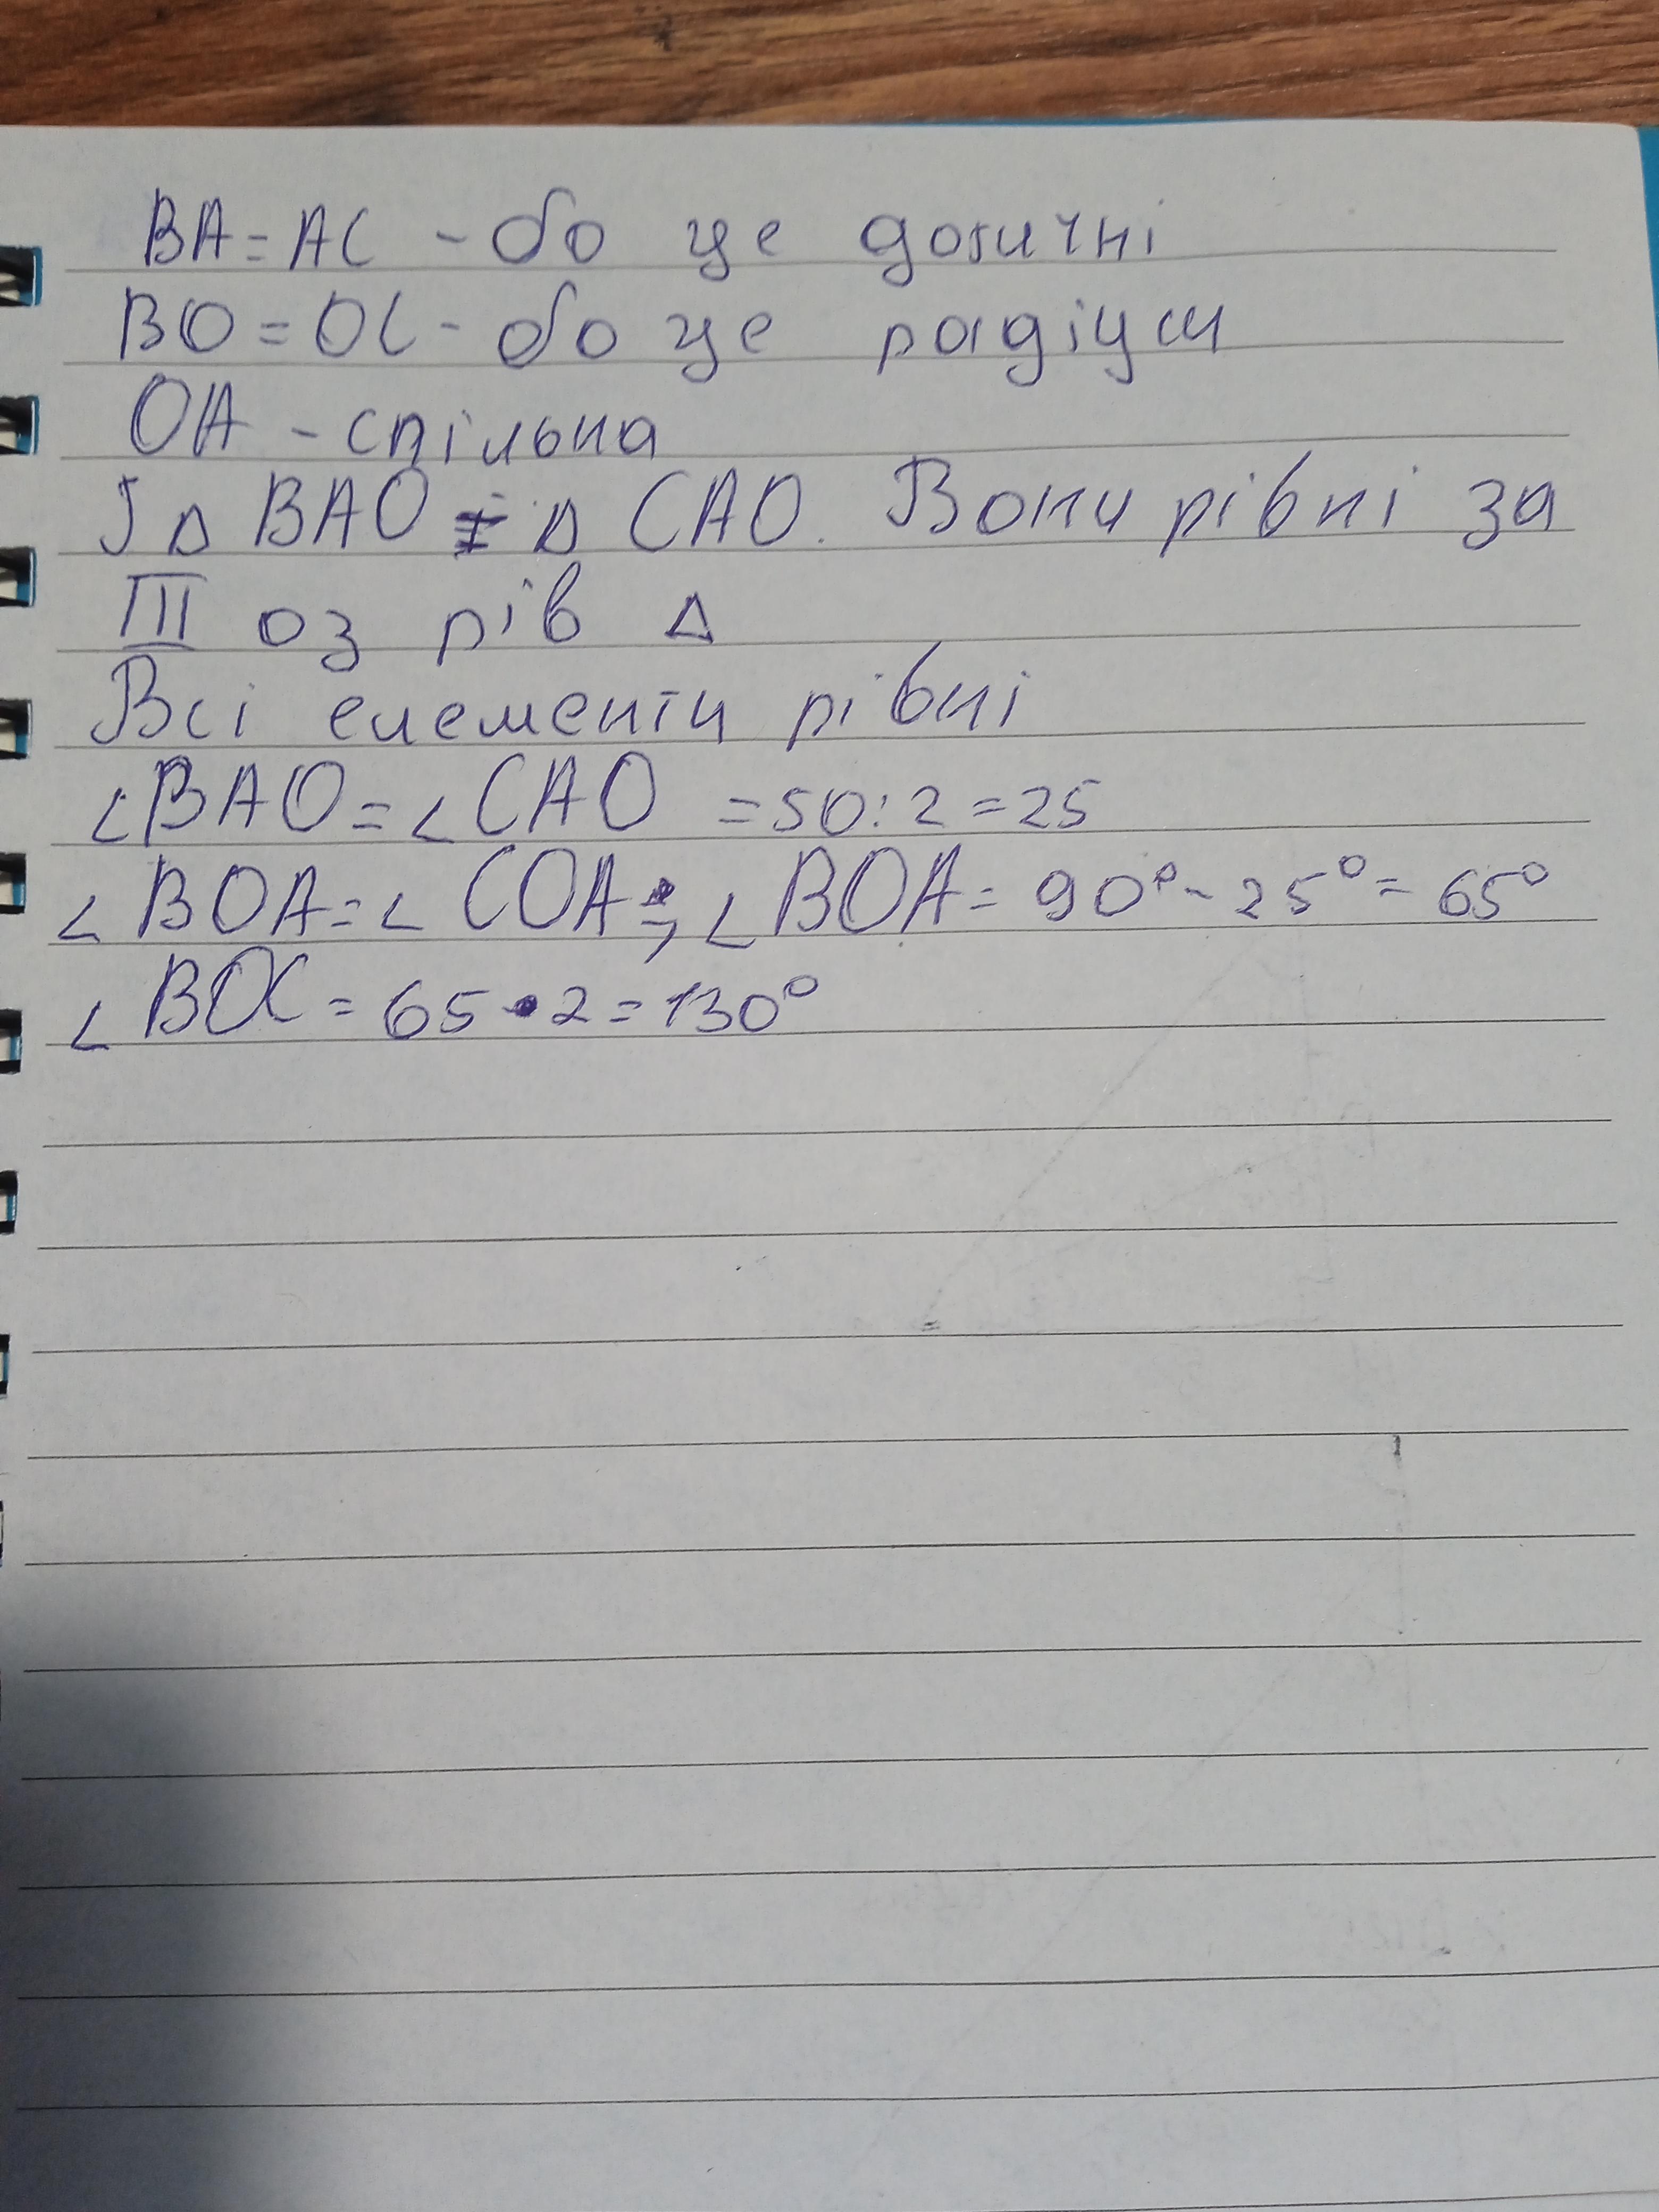 BA = AC - бо це дотичні
BO = OC - бо це радіуси
OA - спільна
І Δ BAO і Δ CAO. Вони рівні за
III оз рів Δ
Всі елементи рівні
∠BAO = ∠CAO = 50 : 2 = 25
∠BOA = ∠COA, ∠BOA = 90° - 25° = 65°
∠BOC = 65 • 2 = 130°